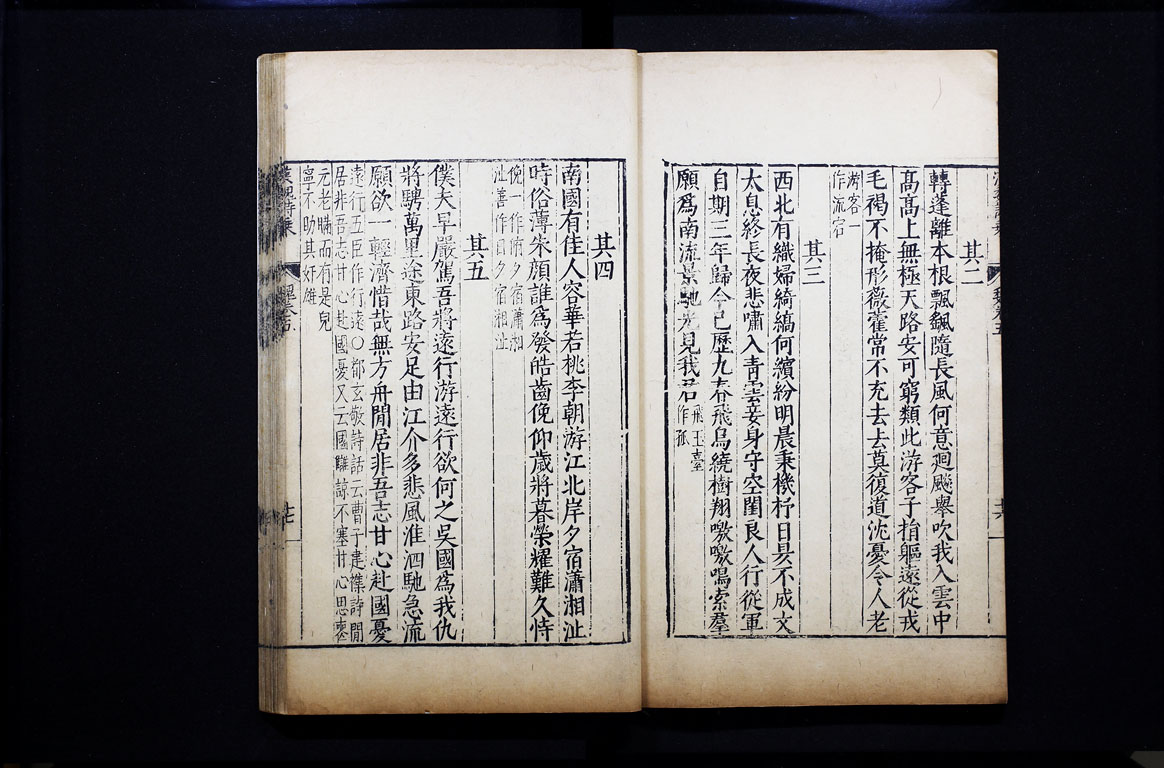 其二
轉蓬離本根飄颻隨長風何意迴飈舉吹我入雲中
高高上無極天路安可窮類此游客子捐軀遠從戎
毛褐不掩形薇藿常不充去去莫復道沈憂令人老
游客一
作流宕
其三
西北有織婦綺縞何繽紛明晨秉機杼日昃不成文
太息終長夜悲嘯入青雲妾身守空閨良人行從軍
自期三年歸今已歷九春飛鳥繞樹翔噭噭鳴索羣
願爲南流景馳光見我君
飛玉臺
作孤
其四
南國有佳人容華若桃李朝游江北岸夕宿瀟湘沚
時俗薄朱顔誰爲發皓齒俛仰歲將暮榮耀難久恃
俛一作俯夕宿瀟湘
沚善作日夕宿湘沚
其五
僕夫早嚴駕吾將遠行游遠行欲何之吳國爲我仇
將騁萬里途東路安足由江介多悲風淮泗馳急流
願欲一輕濟惜哉無方舟閒居非吾志甘心赴國憂
遠行五臣作行遠〇都玄敬詩話云曹子建雜詩閒
居非吾志甘心赴國憂又云國讎諒不塞甘心思喪
元老瞞而有是兒
寧不助其奸雄